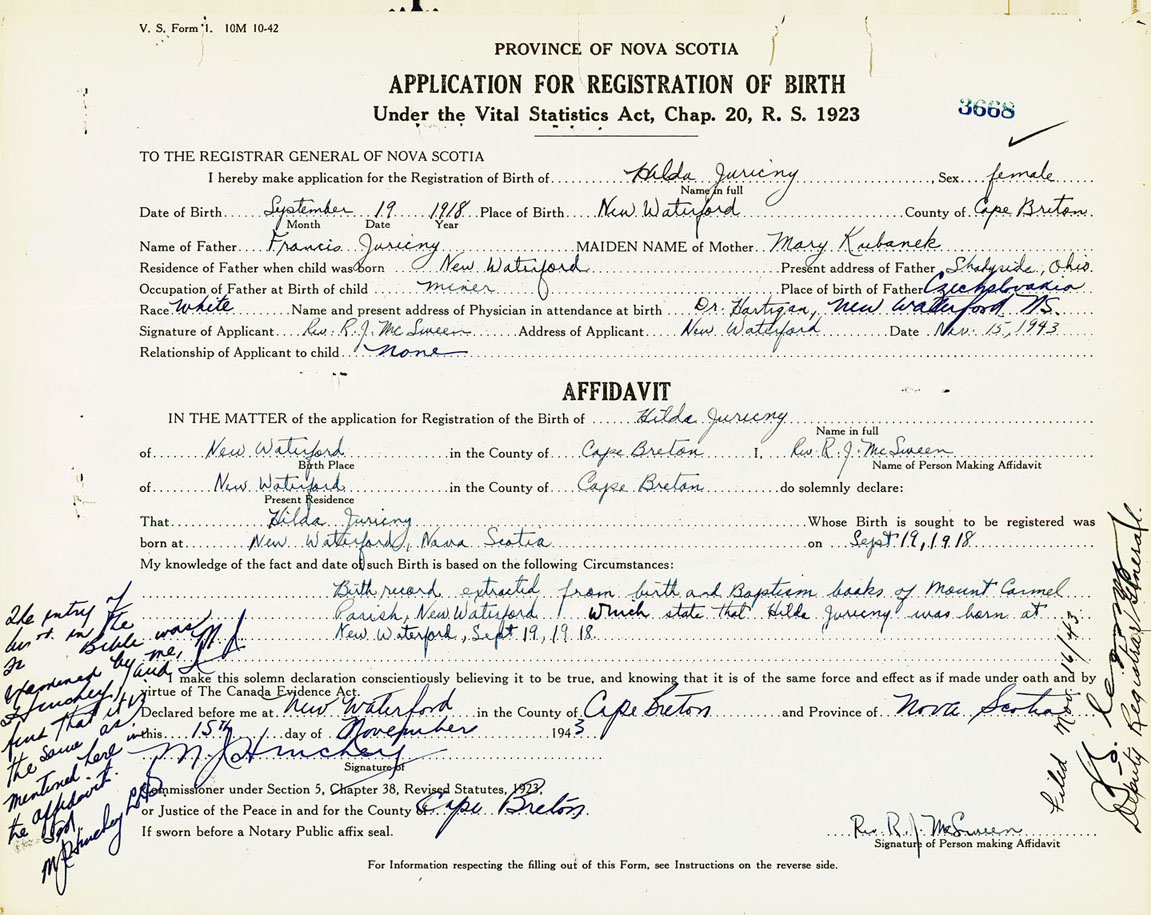 V. S. Form 1. 10M 10-42
PROVINCE OF NOVA SCOTIA
APPLICATION FOR REGISTRATION OF BIRTH
Under the Vital Statistics Act, Chap. 20, R. S. 1923
3668
TO THE REGISTRAR GENERAL OF NOVA SCOTIA
I hereby make application for the Registration of Birth of Hilda Juricny, Sex female
Name in full
Date of Birth September 19 1918 Place of Birth New Waterford County of Cape Breton
Month Date Year
Name of Father Francis Juricny MAIDEN NAME of Mother Mary Kubanek
Residence of Father when child was born New Waterford Present address of Father Shadyside, Ohio.
Occupation of Father at Birth of child miner Place of birth of Father Czechslovakia
Race White Name and present address of Physician in attendance at birth Dr. Hartigan, New Waterford NS.
Signature of Applicant Rev. R. J. McSween Address of Applicant New Waterford Date Nov. 15, 1943
Relationship of Applicant to child none
AFFIDAVIT
IN THE MATTER of the application for Registration of the Birth of Hilda Juricny
Name in full
of New Waterford in the County of Cape Breton I, Rev. R. J. McSween
Birth Place Name of Person Making Affidavit
of New Waterford in the County of Cape Breton do solemnly declare:
Present Residence
That Hilda Juricny Whose Birth is sought to be registered was
born at New Waterford, Nova Scotia on Sept 19, 1918
My knowledge of the fact and date of such Birth is based on the following Circumstances:
Birth record extracted from birth and Baptism books of Mount Carmel
Parish, New Waterford. Which state that Hilda Juricny was born at
New Waterford, Sept 19, 1918.
I make this solemn declaration conscientiously believing it to be true, and knowing that it is of the same force and effect as if made under oath and by
virtue of The Canada Evidence Act.
Declared before me at New Waterford in the County of Cape Breton and Province of Nova Scotia
this 15th day of November 1943
M J Hinchey
Signature of
Commissioner under Section 5, Chapter 38, Revised Statutes, 1923,
or Justice of the Peace in and for the County of Cape Breton
If sworn before a Notary Public affix seal.
Rev. R. J. McSween
Signature of Person making Affidavit
For Information respecting the filling out of this Form, see Instructions on the reverse side.
The entry of
in the
Bible was
examined by me, M J
Hinchey, and
find that it is
the same as
mentioned here in
the affidavit.
Sgd
M J Hinchey
Filed Nov. 16/43
Deputy Registrar General.